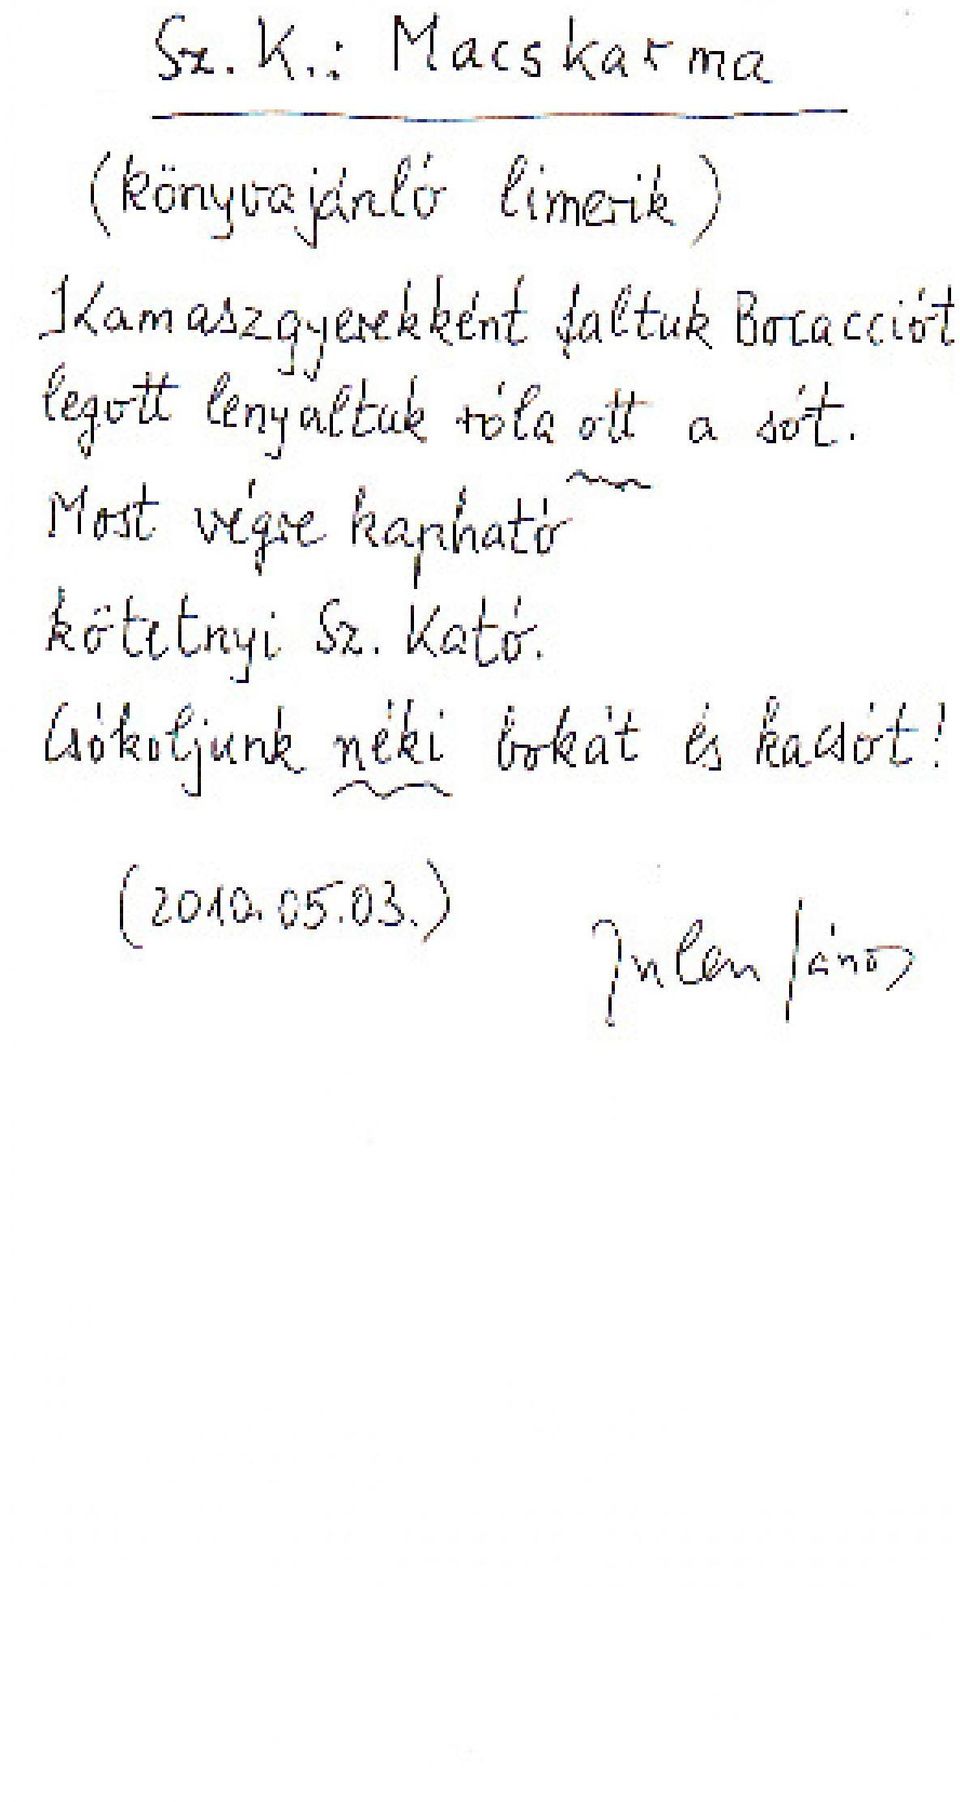 Sz. K.: Macskarma
(könyvajánló limerik)
Kamaszgyerekként faltuk Bocacciót
legott lenyaltuk róla ott a sót.
Most végre kapható
kötetnyi Sz. Kató.
Csókoljunk néki bokát és kacsót!
(2010.05.03.)
János